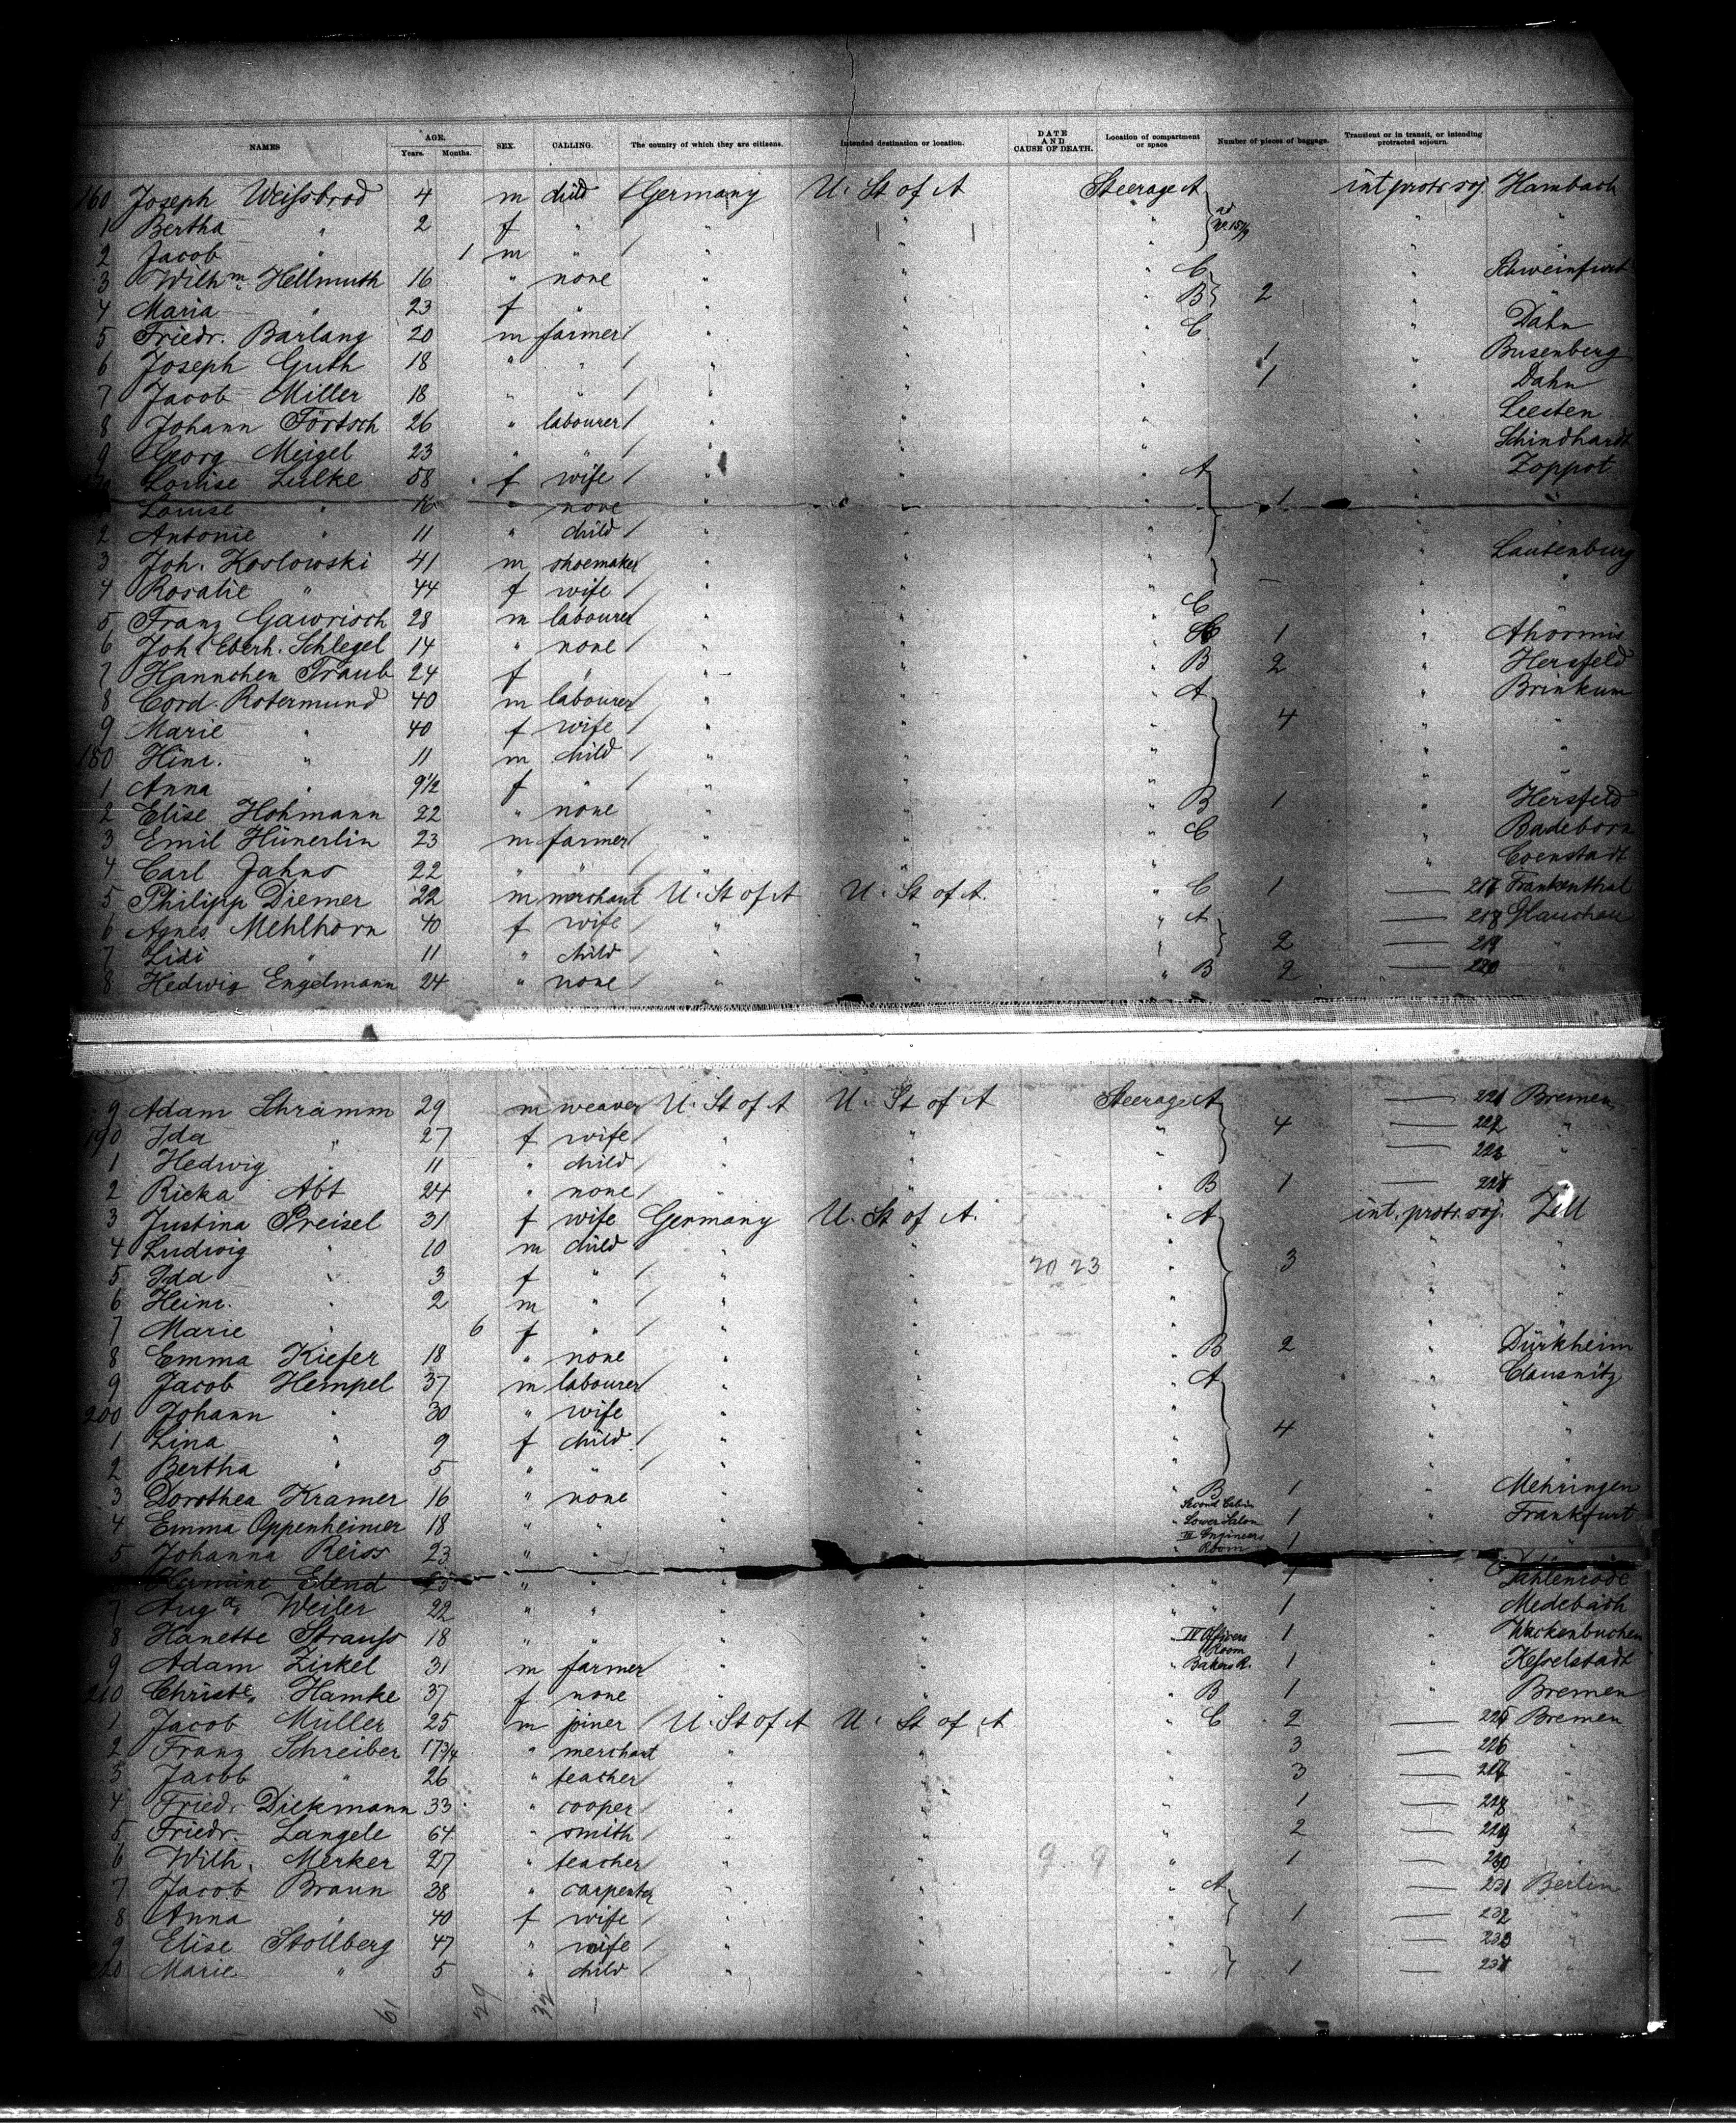 NAMES AGE. Years. Months. SEX. CALLING. The country of which they are citizens. Intended destination or location. DATE AND CAUSE OF DEATH. Location of compartment or space Number of pieces of baggage. Transient or in transit, or intending protracted sojourn.
160 Joseph Weissbrod 4 m child Germany U. St of A Steerage A int protr soj. Hambach
1 Bertha " 2 f " " " " " "
2 Jacob " 1 m " " " " "
3 Wilhm. Hellmuth 16 " none " " " C " Schweinfurt
4 Maria " 23 f " " " " B 2 " "
5 Friedr. Barlang 20 m farmer " " " C " Dahn
6 Joseph Guth 18 " " " " " 1 " Busenberg
7 Jacob Miller 18 " " " " " 1 " Dahn
8 Johann Förtsch 26 " labourer " " " " Leesten
9 Georg Meigel 23 " " " " " " Schindhardt
170 Louise Lulke 58 f wife " " " A " Zoppot
Louise " 16 " none " " " 1 " "
2 Antonie " 11 " child " " " "
3 Joh. Koslowski 41 m shoemaker " " " " Lautenburg
4 Rosalie " 44 f wife " " " — " "
5 Franz Gawrisch 28 m labourer " " " C " "
6 Joh. Eberh. Schlegel 14 " none " " " 1 " Ahornis
7 Hannchen Traub 24 f " " " " B 2 " Hersfeld
8 Cord. Rotermund 40 m labourer " " " A " Brinkum
9 Marie " 40 f wife " " " 4 " "
180 Hinr. " 11 m child " " " " "
1 Anna " 9 1/2 f " " " " " "
2 Elise Hohmann 22 " none " " " B 1 " Hersfeld
3 Emil Hünerlin 23 m farmer " " " C " Badeborn
4 Carl Jahns 22 " " " " " " Coenstadt
5 Philipp Diemer 22 m merchant U. St of A U. St of A. " C 1 — 217 Frankenthal
6 Agnes Mehlhorn 40 f wife " " " A — 218 Glauchau
7 Lidi " 11 " child " " " 2 — 219 "
8 Hedwig Engelmann 24 " none " " " B 2 — 220 "
9 Adam Schramm 29 m weaver U. St of A U. St of A Steerage A — 221 Bremen
190 Ida " 27 f wife " " " 4 — 222 "
1 Hedwig " 11 " child " " " — 223 "
2 Ricka Abt 24 " none " " " B 1 — 224 "
3 Justina Preisel 31 f wife Germany U. St of A. " A int. protr. soj. Zell
4 Ludwig " 10 m child " " " " "
5 Ida " 3 f " " " 20 23 " 3 " "
6 Heinr. " 2 m " " " " " "
7 Marie " 6 f " " " " " "
8 Emma Kiefer 18 " none " " " B 2 " Dürkheim
9 Jacob Hempel 37 m labourer " " " A " Clausnitz
200 Johann " 30 " wife " " " " "
1 Lina " 9 f child " " " 4 " "
2 Bertha " 5 " " " " " " "
3 Dorothea Kramer 16 " none " " " B 1 " Mehringen
4 Emma Oppenheimer 18 " " " " " Second Cabin Lower Salon 1 " Frankfurt
5 Johanna Reiss 23 " " " " " III Engineers Room 1
Hermine Elend 23 " " " " " " 1 "
7 Auga. Weiler 22 " " " " " " 1 " Medebach
8 Hanette Strauss 18 " " " " " IV Officers Room 1 " Wackenbuchen
9 Adam Zirkel 31 m farmer " " " Bakers R. 1 " Kesselstadt
210 Christe. Hamke 37 f none " " " B 1 " Bremen
1 Jacob Müller 25 m joiner U. St of A U. St of A " C 2 — 225 Bremen
2 Franz Schreiber 17 3/4 " merchant " " " 3 — 226 "
3 Jacob " 26 " teacher " " " 3 — 227 "
4 Friedr. Diekmann 33 " cooper " " " 1 — 228 "
5 Friedr. Langele 64 " smith " " " 2 — 229 "
6 Wilh. Merker 27 " teacher " " 9 9 " 1 — 230 "
7 Jacob Braun 38 " carpenter " " " A — 231 Berlin
8 Anna " 40 f wife " " " 1 — 232 "
9 Elise Stollberg 47 " wife " " " — 233 "
220 Marie " 5 " child " " " 1 — 234 "
61 29 32 1